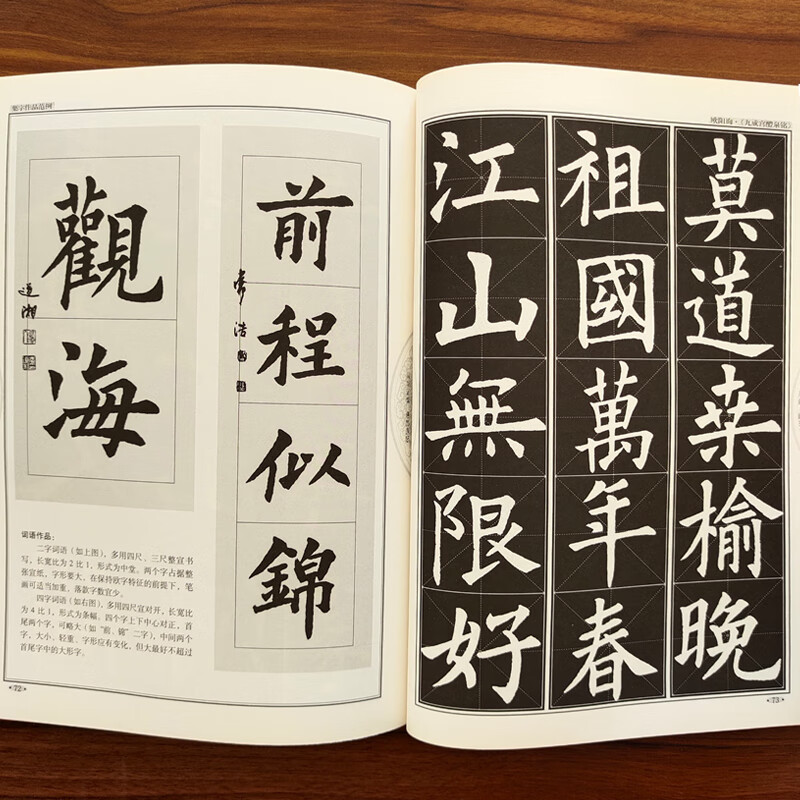 集字作品范例
觀海
道湘
前程似錦
浩
词语作品：
二字词语（如上图），多用四尺、三尺整宣书
写，长宽比为2比1，形式为中堂。两个字占据整
张宣纸，字形要大，在保持欧字特征的前提下，笔
画可适当加重，落款字数宜少。
四字词语（如右图），多用四尺宣对开，长宽比
为4比1，形式为条幅。四个字上下中心对正，首
尾两个字，可略大（如“前、锦”二字），中间两个
字，大小、轻重、字形应有变化，但大最好不超过
首尾字中的大形字。
72
欧阳询·《九成宫醴泉铭》
莫道桒榆晚
祖國萬年春
江山無限好
73